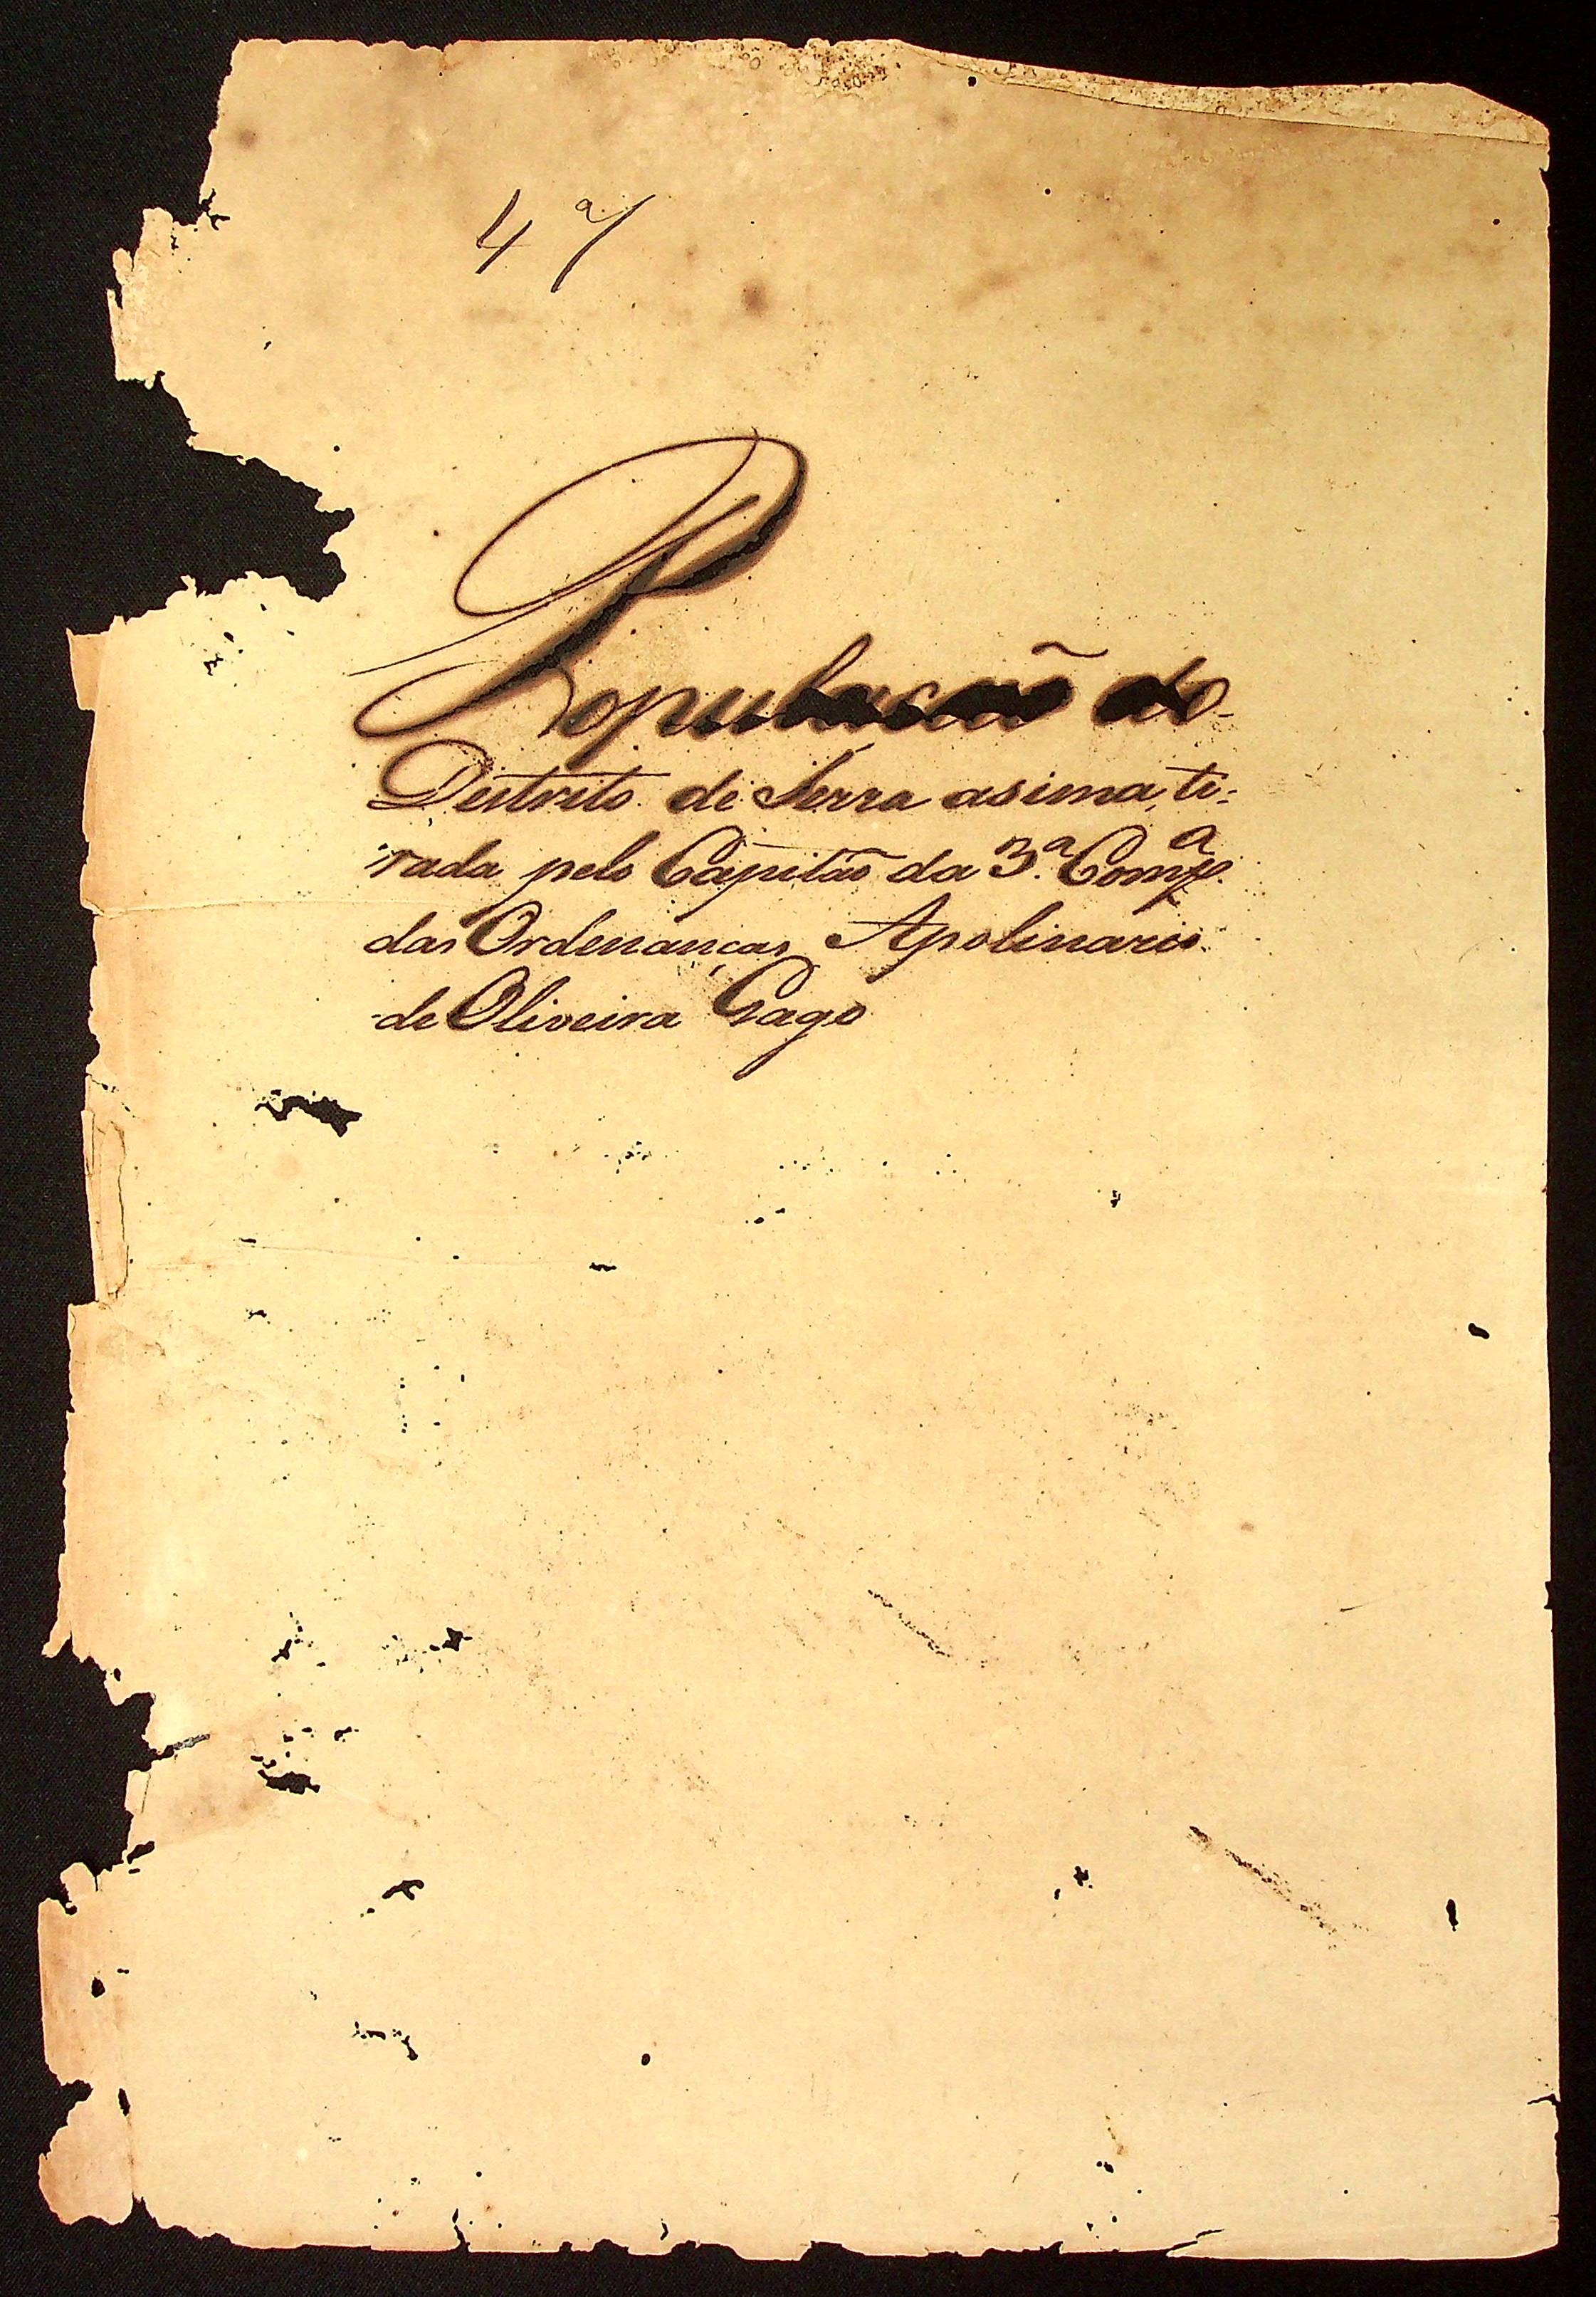 4ª/
População do
Destrito de Serra asima, ti-
rada pelo Capitão da 3.ª Compª
das Ordenanças Apolinario
de Oliveira Gago